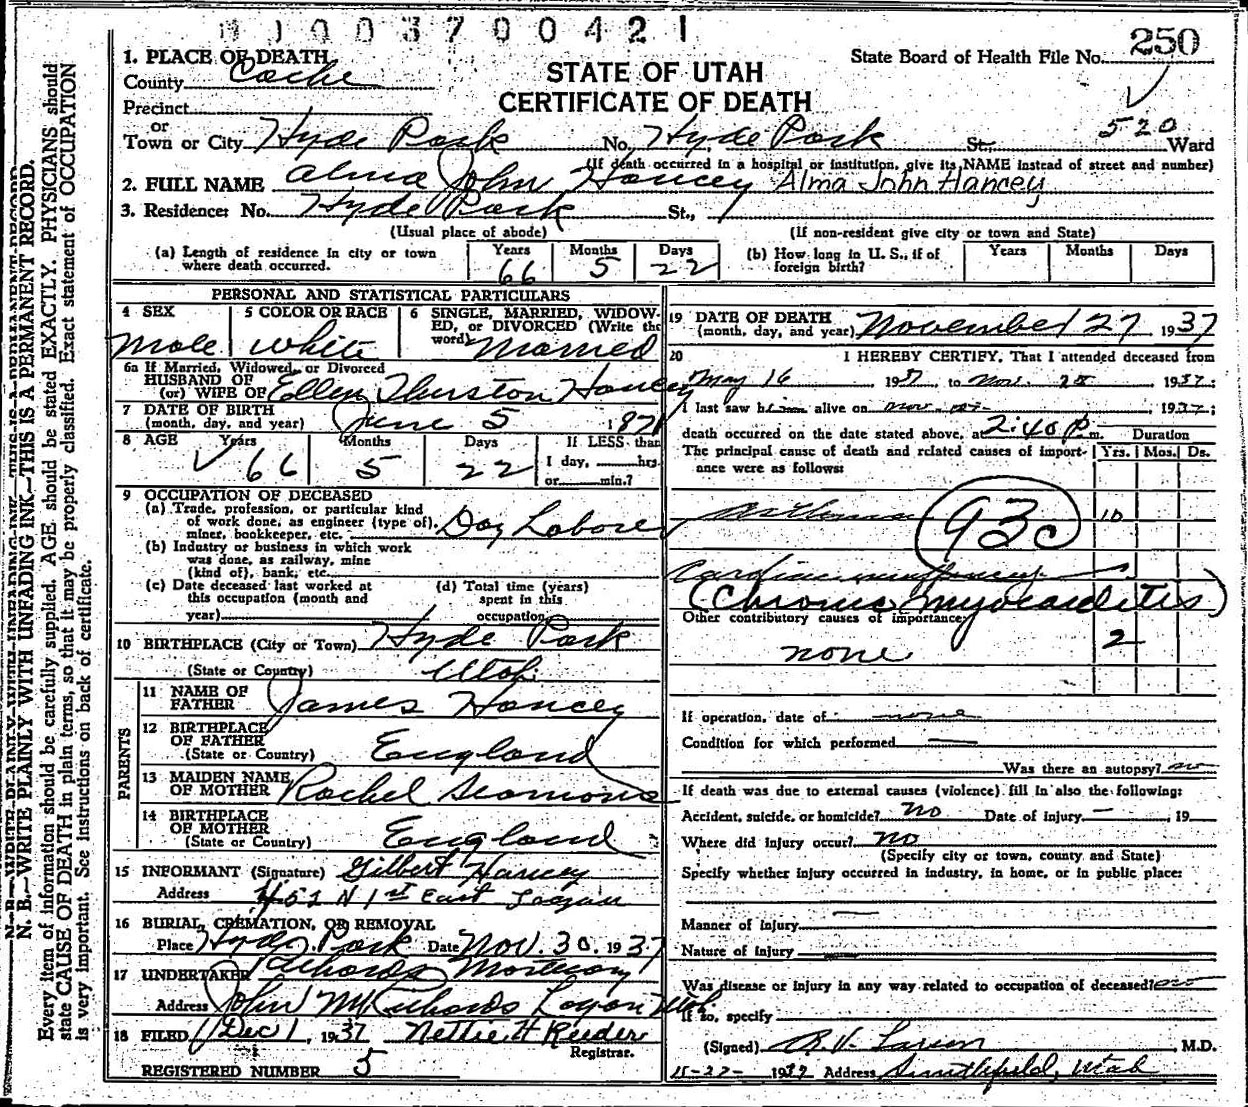 1003700421
250
1. PLACE OF DEATH
County Cache
State Board of Health File No.
STATE OF UTAH
CERTIFICATE OF DEATH
Precinct
or
Town or City Hyde Park No. Hyde Park St. Ward
520
(If death occurred in a hospital or institution, give its NAME instead of street and number)
2. FULL NAME Alma John Hancey Alma John Hancey
3. Residence: No. Hyde Park St.,
(Usual place of abode) (If non-resident give city or town and State)
(a) Length of residence in city or town where death occurred. Years 66 Months 5 Days 22
(b) How long in U. S., if of foreign birth? Years Months Days
PERSONAL AND STATISTICAL PARTICULARS
4 SEX Male
5 COLOR OR RACE White
6 SINGLE, MARRIED, WIDOWED, or DIVORCED (Write the word) Married
6a If Married, Widowed, or Divorced
HUSBAND OF
(or) WIFE OF Ellen Thurston Hancey
7 DATE OF BIRTH
(month, day, and year) June 5 1871
8 AGE Years 66 Months 5 Days 22 If LESS than
1 day, hrs.
or min.?
9 OCCUPATION OF DECEASED
(a) Trade, profession, or particular kind
of work done, as engineer (type of),
miner, bookkeeper, etc. Day Laborer
(b) Industry or business in which work
was done, as railway, mine
(kind of), bank, etc.
(c) Date deceased last worked at
this occupation (month and
year)
(d) Total time (years)
spent in this
occupation
10 BIRTHPLACE (City or Town) Hyde Park
(State or Country) Utah
PARENTS
11 NAME OF
FATHER James Hancey
12 BIRTHPLACE
OF FATHER
(State or Country) England
13 MAIDEN NAME
OF MOTHER Rachel Seamons
14 BIRTHPLACE
OF MOTHER
(State or Country) England
15 INFORMANT (Signature) Gilbert Hancey
Address 452 N 1st East Logan
16 BURIAL, CREMATION, OR REMOVAL
Place Hyde Park Date Nov. 30. 1937
17 UNDERTAKER Richards Mortuary
Address John M Richards Logan Utah
18 FILED Dec 1, 1937 Nettie H Reeder
Registrar.
REGISTERED NUMBER 5
19 DATE OF DEATH
(month, day, and year) November 27 1937
20 I HEREBY CERTIFY, That I attended deceased from
May 16 1937 to Nov. 1937;
I last saw him alive on Nov. 1937;
death occurred on the date stated above, at 2:40 P m. Duration
The principal cause of death and related causes of importance were as follows: Yrs. Mos. Ds.
Asthma 10
93c
Cardiac
(Chronic Myocarditis)
Other contributory causes of importance:
none 2
If operation, date of none
Condition for which performed
Was there an autopsy? no
If death was due to external causes (violence) fill in also the following:
Accident, suicide, or homicide? No Date of injury , 19
Where did injury occur? no
(Specify city or town, county and State)
Specify whether injury occurred in industry, in home, or in public place:
Manner of injury
Nature of injury
Was disease or injury in any way related to occupation of deceased? no
If so, specify
(Signed) R. V. Larsen, M.D.
Address Smithfield, Utah
N. B.—WRITE PLAINLY WITH UNFADING INK—THIS IS A PERMANENT RECORD.
Every item of information should be carefully supplied. AGE should be stated EXACTLY. PHYSICIANS should
state CAUSE OF DEATH in plain terms, so that it may be properly classified. Exact statement of OCCUPATION
is very important. See instructions on back of certificate.